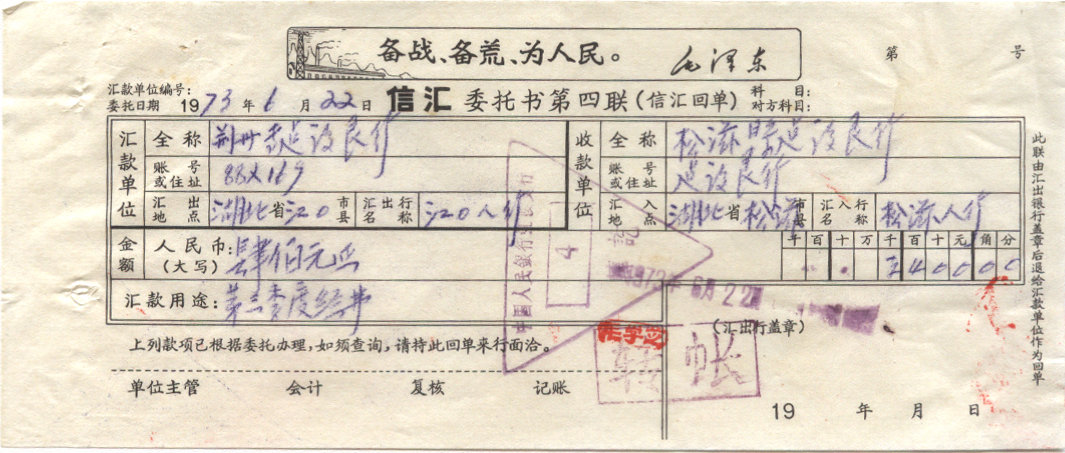 备战、备荒、为人民。 毛泽东
第 号
汇款单位编号：
委托日期 1973年6月22日 信汇 委托书第四联（信汇回单） 科 目：
对方科目：
汇款单位 全称 荆州 建设艮行 收款单位 全称 松滋县建设艮行
账号或住址 88 169 账号或住址 建设艮行
汇出地点 湖北省江0市县 汇出行名称 江0人行 汇入地点 湖北省松滋市县 汇入行名称 松滋人行
金额 人民币：（大写） 肆佰元正 千百十万千百十元角分
40000
汇款用途：第三季度经费
1973年6月22
（汇出行盖章）
上列款项已根据委托办理，如须查询，请持此回单来行面洽。
转帐
单位主管 会计 复核 记账
19 年 月 日
此联由汇出银行盖章后退给汇款单位作为回单
中国人民銀行
4